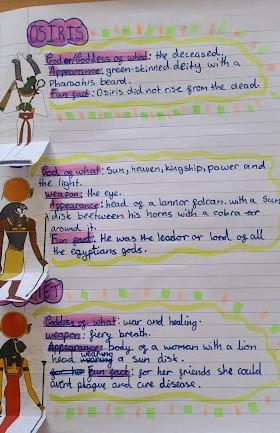 OSIRIS
God or/Goddess of what: the deceased.
Appearance: green-skinned deity with a
Pharaohs beard.
Fun fact: Osiris did not rise from the dead.
God of what: Sun, heaven, kingship, power and
the light.
weapon: the eye.
Appearance: head of a lannar folcan. with a Sun
disk beetween his horns with a cobra
around it.
Fun fact: He was the leador or lord of all
the egyptians gods.
Goddess of what: war and healing.
weapon: fiery breath.
Appearance: body of a woman with a lion
head wearing a sun disk.
fun fact: for her friends she could
avint plague and cure disease.